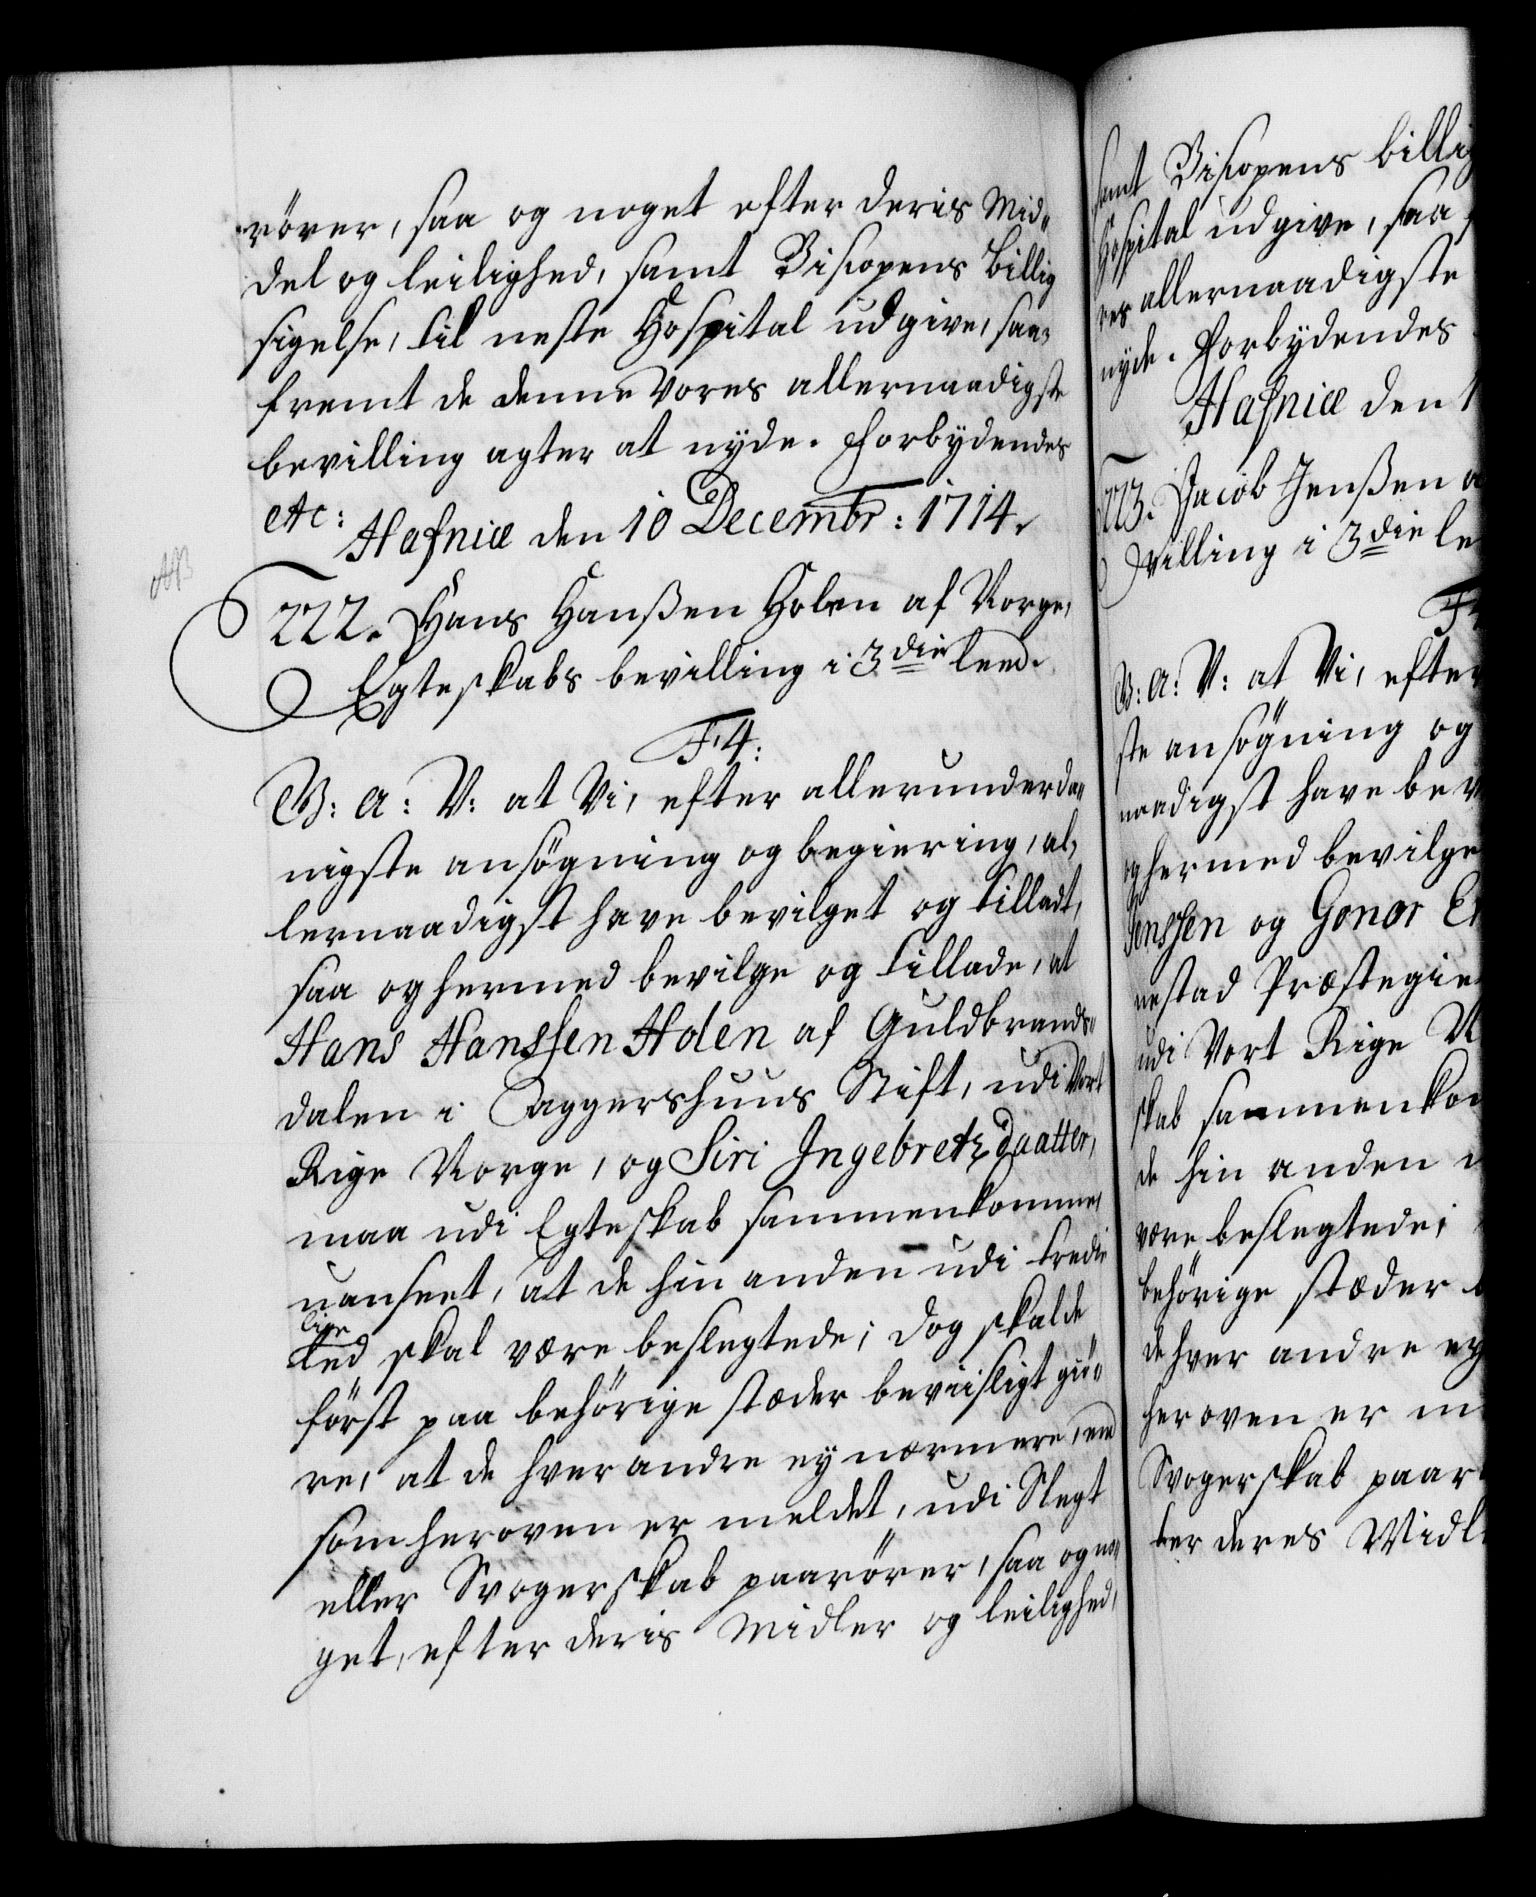 rörer, saa og noget efter deris Mid-
del og leilighed, samt Biscopens billig
sigelse, til neste Hospital udgive, saa-
fremt de denne Vores allernaadigste
bevilling agter at nyde. Forbydendes
etc: Hafniæ den 10 Decembr: 1714.
222. Hans Hanßen Holen af Norge,
Egteskabs bevilling i 3die leed.
F4:
G: A: V: at Vi, efter allerunderda-
nigste ansögning og begiering, al-
lernaadigst have bevilget og tilladt,
saa og hermed bevilge og tillade, at
Hans Hanssen Holen af Guldbrands-
dalen i Aggershuus Stift, udi Vort
Rige Norge, og Siri Ingebretzdaatter,
maa udi Egteskab sammenkomme,
uanseet, at de hin anden udi tredie
lige
led skal være beslegtede; dog skal de
först paa behörige stæder beviisligt giö-
re, at de hver andre ey nærmere, end
som heroven er meldet, udi Slegt
eller Svogerskab paarörer, saa og no-
get, efter deris Midler og leilighed,
samt Biscopens billig
Hospital udgive, saa
res allernaadigste
nyde. Forbydendes
Hafniæ den 1
223. Jacob Jenßen
villing i 3die le
F4
G: A: V: at Vi, efter
ste ansögning og
naadigst have bev
og hermed bevilge
Jenssen og Gonor
nestad Præstegie
udi Vort Rige N
skab sammenkom
de hin anden
være beslegtede;
behörige stæder
de hver andre ey
heroven er m
Svogerskab paar
ter deres Midl